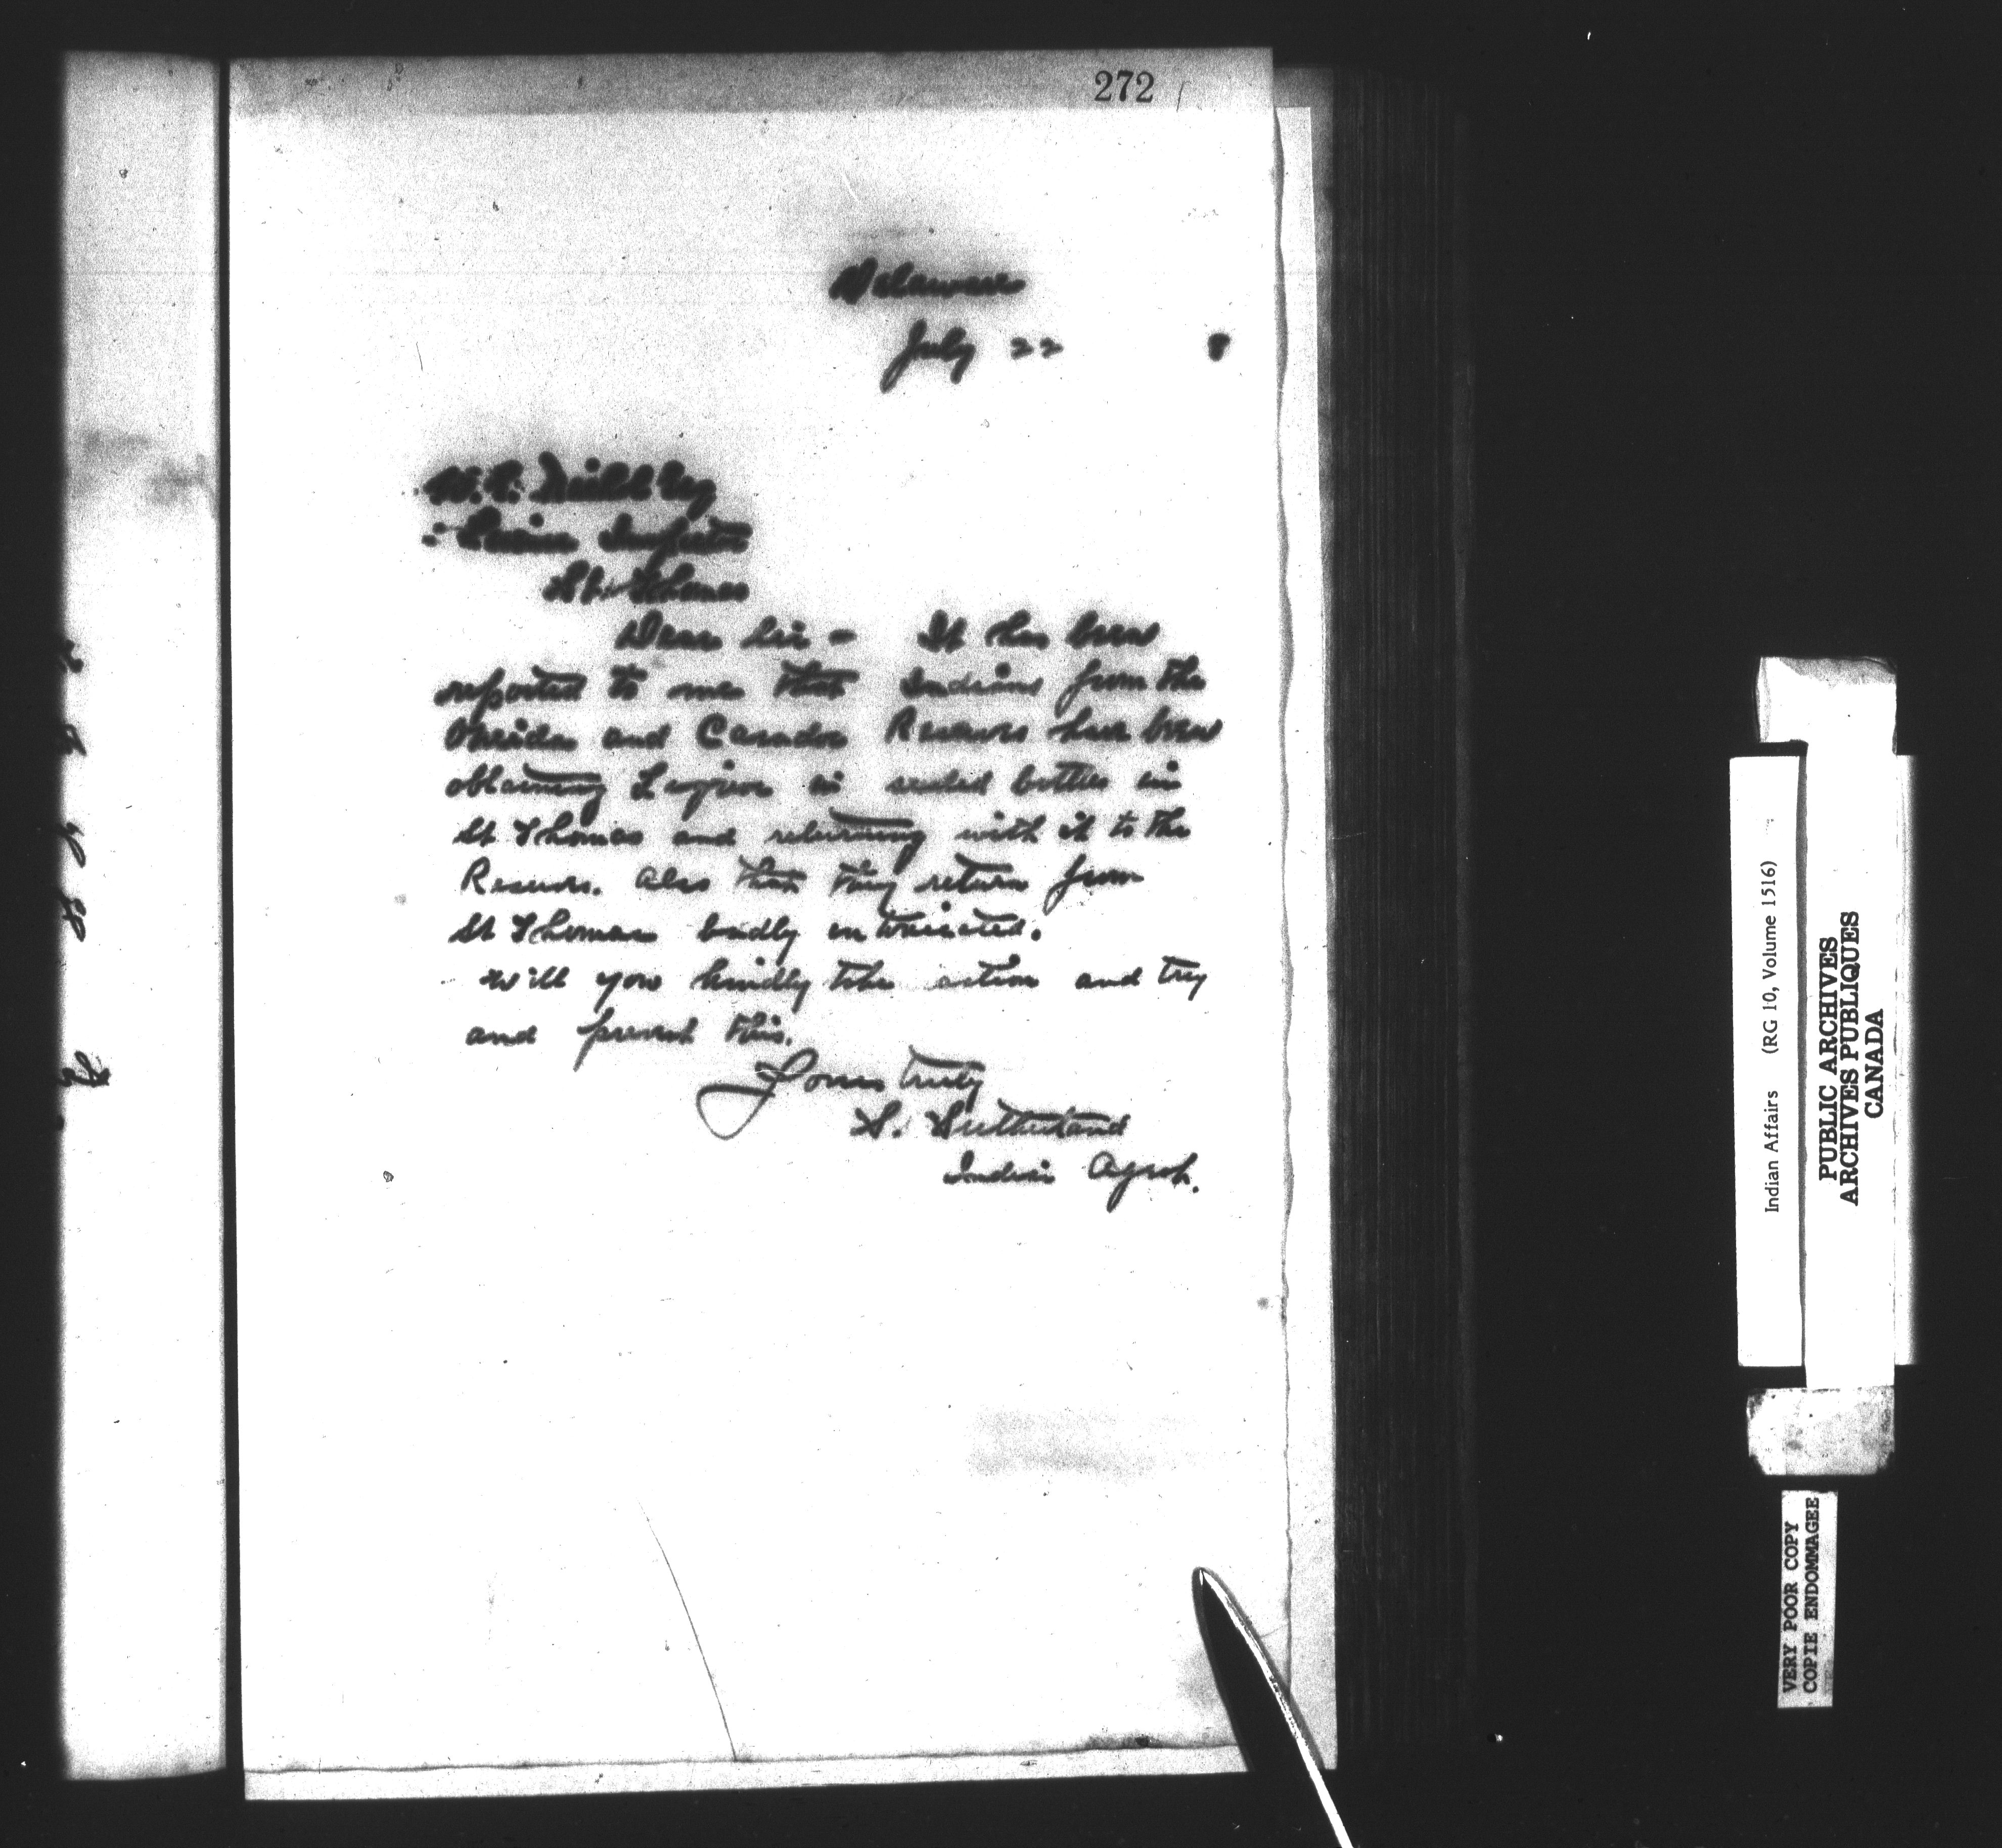 272
Delaware
July 22 8
W. R. Esq
License Inspector
St. Thomas
Dear Sir - It has been
reported to me that Indians from the
Oneida and Caradoc Reserves have been
obtaining Liquor in sealed bottles in
St Thomas and returning with it to the
Reserves. Also that they return from
St Thomas badly intoxicated.
Will you kindly take action and try
and prevent this.
Yours truly
S. Sutherland
Indian Agent.
Indian Affairs (RG 10, Volume 1516)
PUBLIC ARCHIVES
ARCHIVES PUBLIQUES
CANADA
VERY POOR COPY
COPIE ENDOMMAGEE